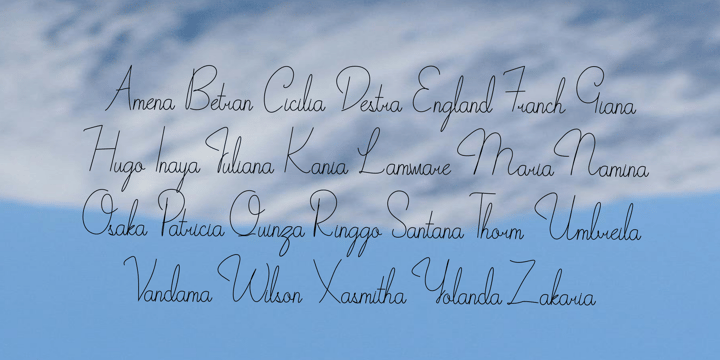 Amena Betran Cicilia Destra England Franch Giana
Hugo Inaya Juliana Kania Lamware Maria Namina
Osaka Patricia Quinza Ringgo Santana Thorm Umbreila
Vandama Wilson Xasmitha Yolanda Zakaria